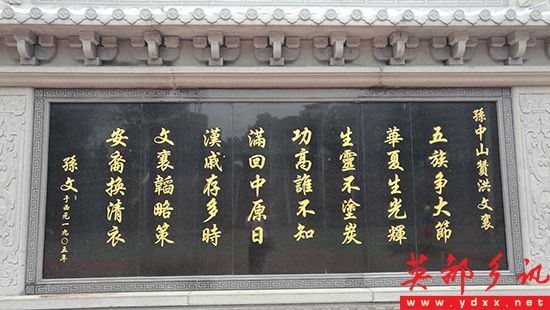 孫中山贊洪文襄
五族争大節
華夏生光輝
生靈不塗炭
功高誰不知
滿回中原日
漢戚存多時
文襄韜略策
安裔換清衣
孫文
于西元一九〇五年
英都乡讯
www.ydxx.net